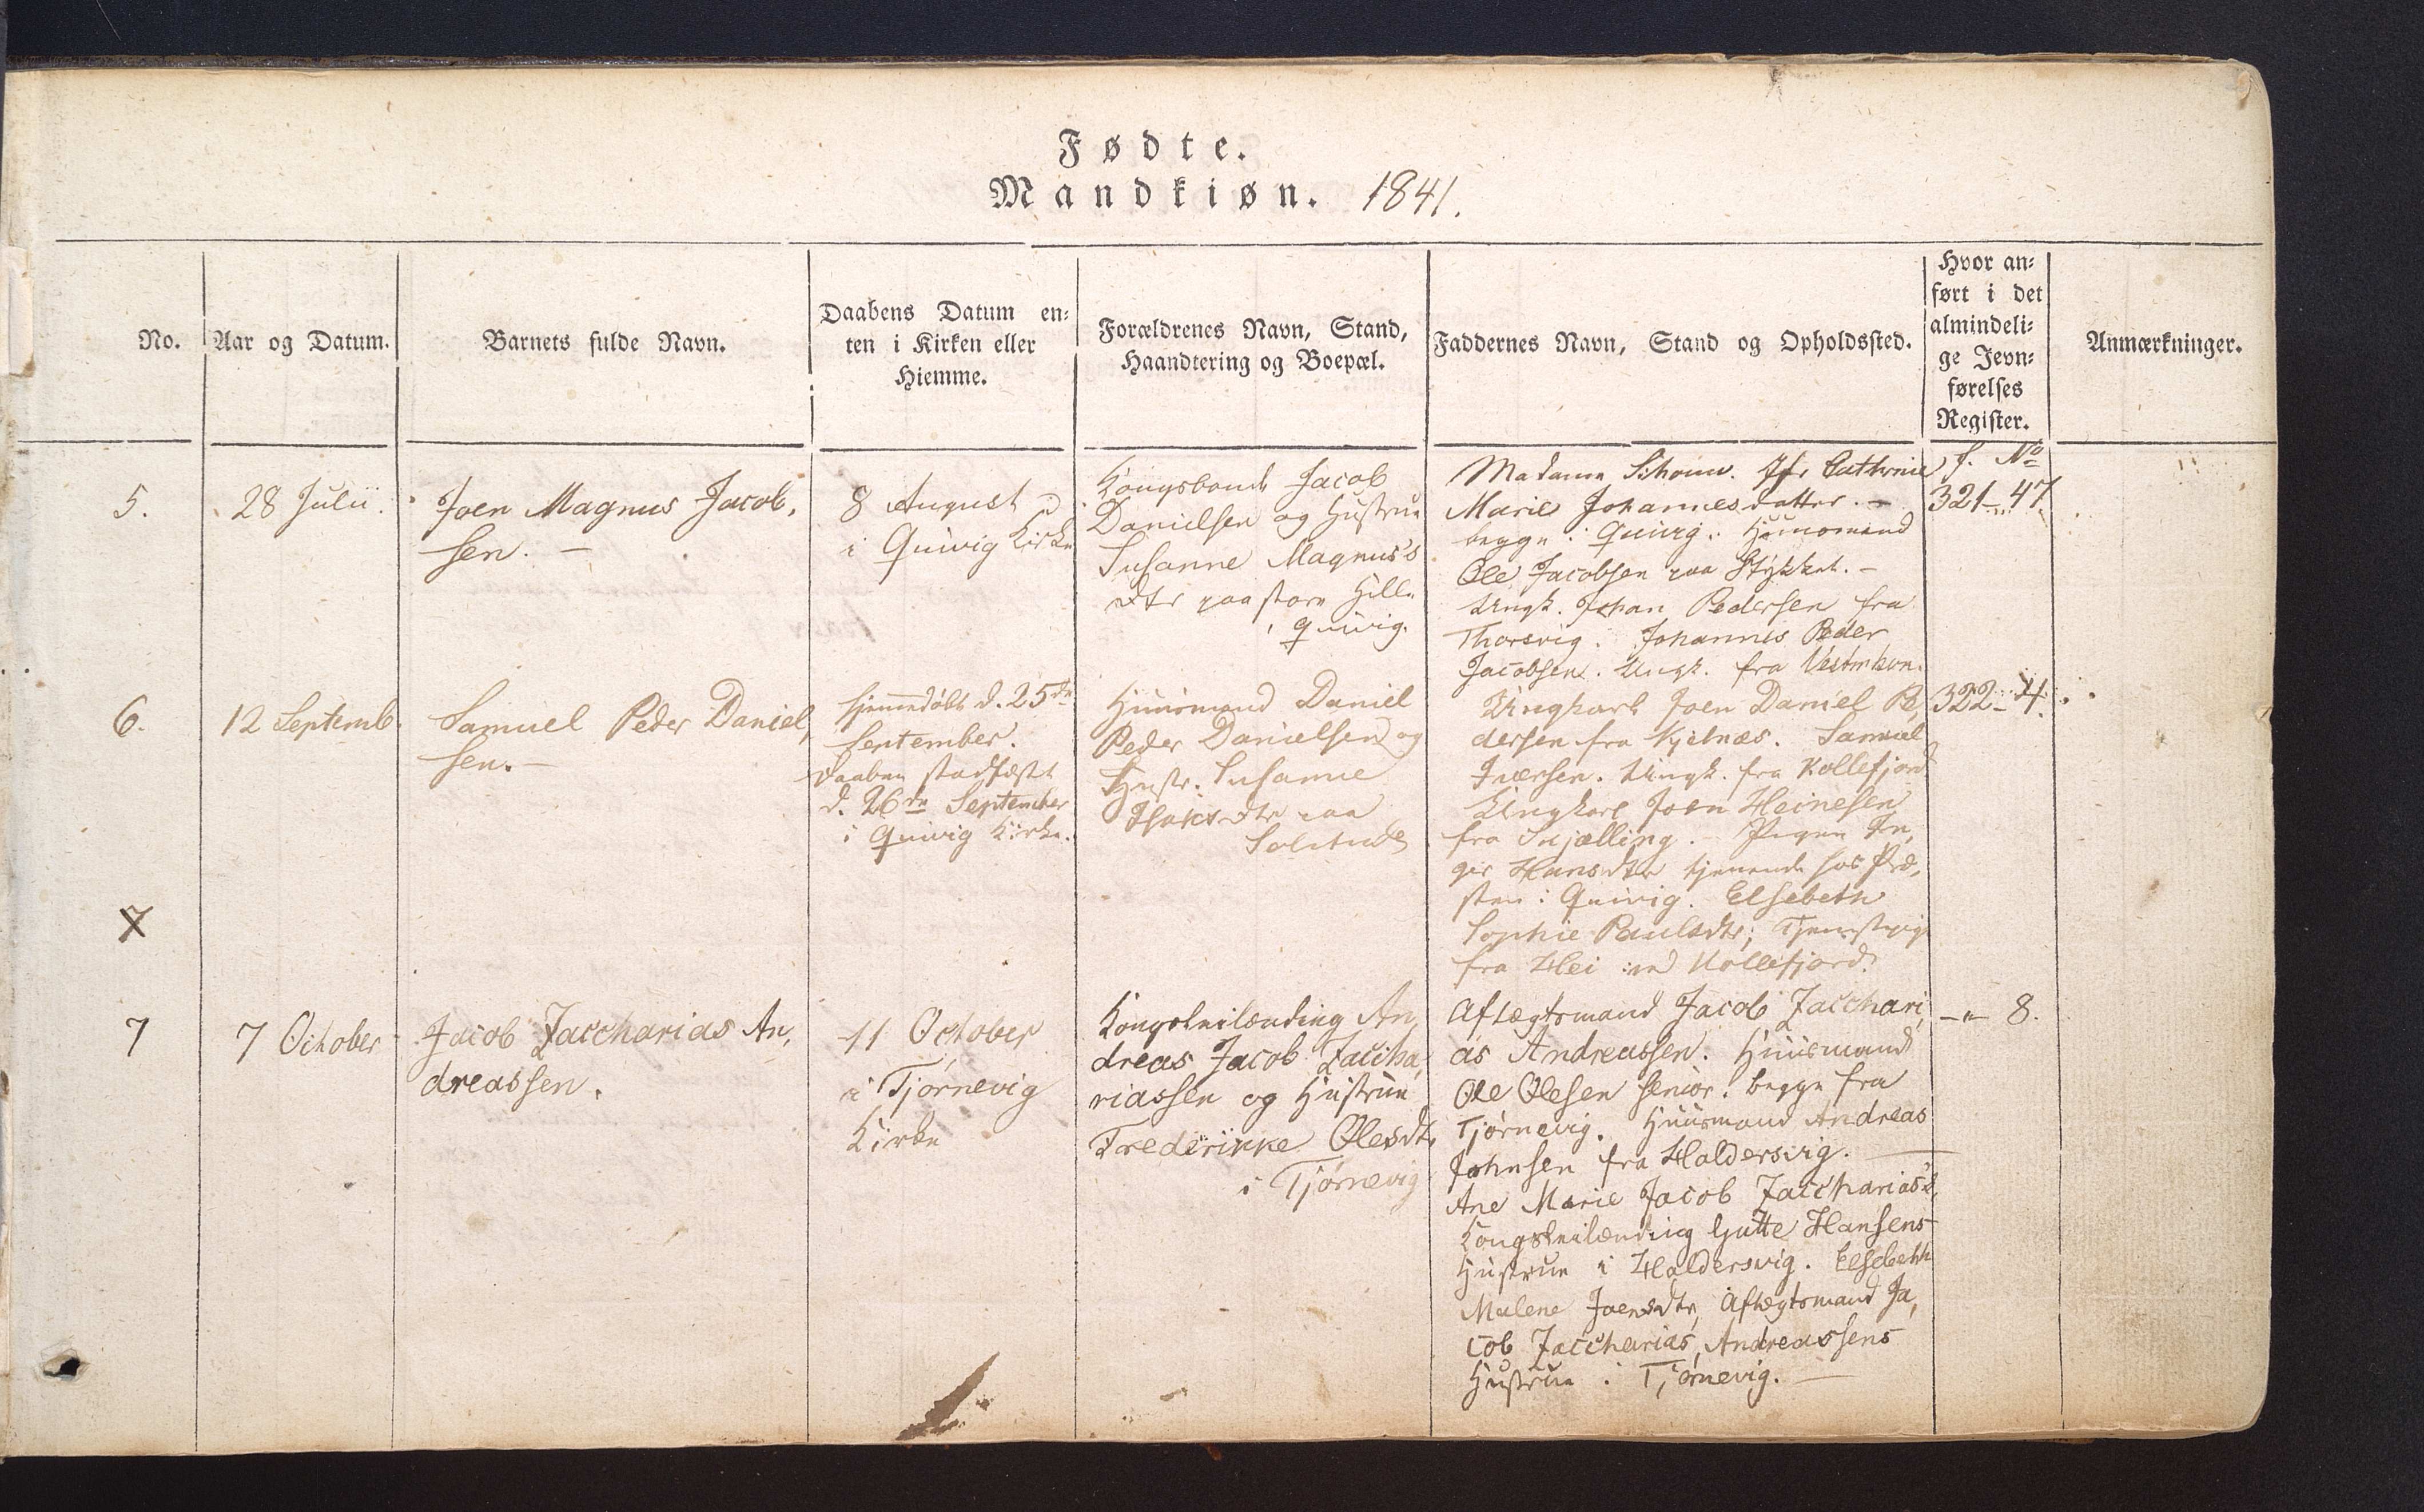 Fødte.
Mandkiøn. 1841.
No.
Aar og Datum.
Barnets fulde Navn.
Daabens Datum en-
ten i Kirken eller
Hiemme.
Forældrenes Navn, Stand,
Haandtering og Boepæl.
Faddernes Navn, Stand og Opholdssted.
Hvor an-
ført i det
almindeli-
ge Jevn-
førelses
Register.
Anmærkninger.
5.
28 Julii.
Joen Magnus Jacob,
sen. –
8 August
i Quivig Kirke
Kongsbonde Jacob
Danielsen og Hustrue
Susanne Magnus's
Dtr paa store Hille
i Quivig.
Madame Schouw. Jfr Cathrine
Marie Johannesdatter. –
begge i Quivig. Huusmand
Ole Jacobsen paa Stykket. –
Ungk. Johan Pedersen fra
Thorsvig. Johannes Peder
Jacobsen. Ungk. fra Vestmhvn.
f. No
321–47
6.
12 Septemb.
Samuel Peder Daniel,
sen. –
Hjemmedöbt d. 25de
September.
Daaben stadfæstet
d. 26de September
i Quivig Kirke.
Huusmand Daniel
Peder Danielsen og
Hustr. Susanne
Isaksdtr paa
Solitude
Ungkarl Joen Daniel Pe,
dersen fra Kjelnæs. Samuel
Iversen. Ungk. fra Kollefjord
Ungkarl Joen Heinesen
fra Skjælling. Pigen In,
ger Hansdtr tjenende hos Præ,
sten i Quivig. Elsebeth
Sophie Paulsdtr; Tjenestepige
fra Hei ved Kollefjord.
322–4.
7
7
7 October
Jacob Zaccharias An,
dreassen.
11 October
i Tjørnevig
Kirke
Kongsleilænding An,
dreas Jacob Zaccha,
riassen og Hustrue
Frederikke Olesdtr
i Tjørnevig
Aftægtsmand Jacob Zacchari,
as Andreassen. Huusmand
Ole Olesen senior. begge fra
Tjørnevig. Huusmand Andreas
Johnsen fra Haldersvig. –
Ane Marie Jacob Zaccharias's,
Kongsleilænding Gutte Hansens
Hustrue i Haldersvig. Elsebeth
Malene Joensdtr, Aftægtsmand Ja,
cob Zaccharias, Andreassens
Hustrue i Tjørnevig. –
–"– 8.